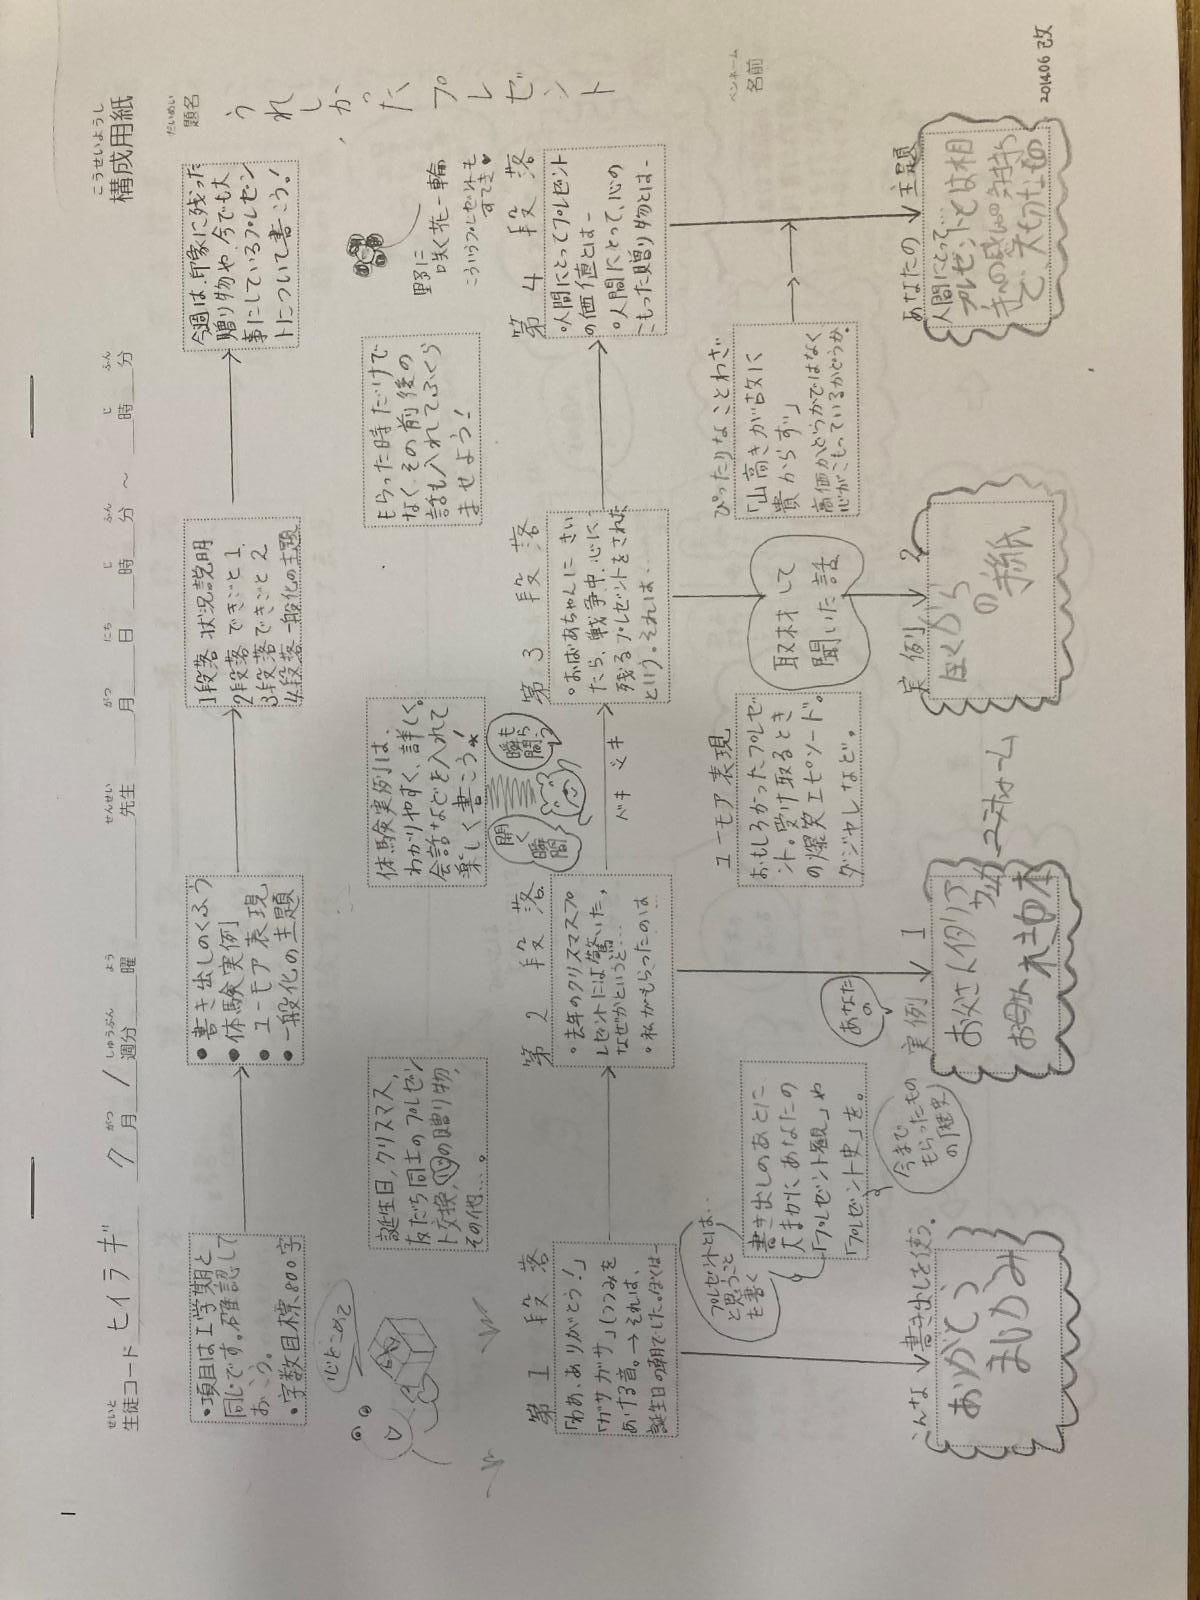 構成用紙
こうせいようし
生徒コード ヒイラギ 7月/週分 曜 先生 月 日 時 分 ～ 時 分
せいと がつ しゅうぶん よう せんせい がつ にち じ ふん じ ふん
題名
だいめい
うれしかったプレゼント
名前
ペンネーム
●項目は1学期と
同じです。確認して
おこう。
●字数目標800字
●書き出しのくふう
●体験実例
●ユーモア表現
●一般化の主題
1段落 状況説明
2段落 できごと1
3段落 できごと2
4段落 一般化の主題
今週は、印象に残った
贈り物や、今でも大
事にしているプレゼン
トについて書こう！
心をこめて
誕生日、クリスマス、
友だち同士のプレゼン
ト交換、心の贈り物、
その他…。
体験実例は、
わかりやすく、詳しく。
会話などを入れて
楽しく書こう！
開く
瞬間
瞬間
ドキドキ
もらった時だけで
なく、その前後の
話も入れてふくら
ませよう！
野に
咲く花一輪
こういうプレゼントも
すてき♥
第1段落
「わあ、ありがとう！」
「ガサガサ」(つつみを
あける音。→それは、
誕生日の朝でした。ぼくは―
第2段落
・去年のクリスマスプ
レゼントには驚いた。
なぜかというと…
・私がもらったのは
第3段落
・おばあちゃんにきい
たら、戦争中、心に
残るプレゼントをされた
という。それは…
第4段落
・人間にとってプレゼント
の価値とは―
・人間にとって、心の
こもった贈り物とは―
プレゼントとは…
と思うこと
を書く
書き出しのあとに
大まかにあなたの
「プレゼント観」や
「プレゼント史」を。
今まで
もらったもの
の歴史
あなた
の
ユーモア表現
おもしろかったプレゼ
ント。受け取るとき
の爆笑エピソード。
ダジャレなど。
取材して
聞いた話
ぴったりなことわざ
「山高きが故に
貴からず」
高価かどうかではなく
心がこもっているかどうか。
こんな書き出しを使う。
ありがとう
実例1
お父さん
お母さん
ユニフォーム
実例2
の手紙
あなたの主題
人間にとって…
プレゼントとは相
手への感謝の気持ち
で大切なもの
201406改